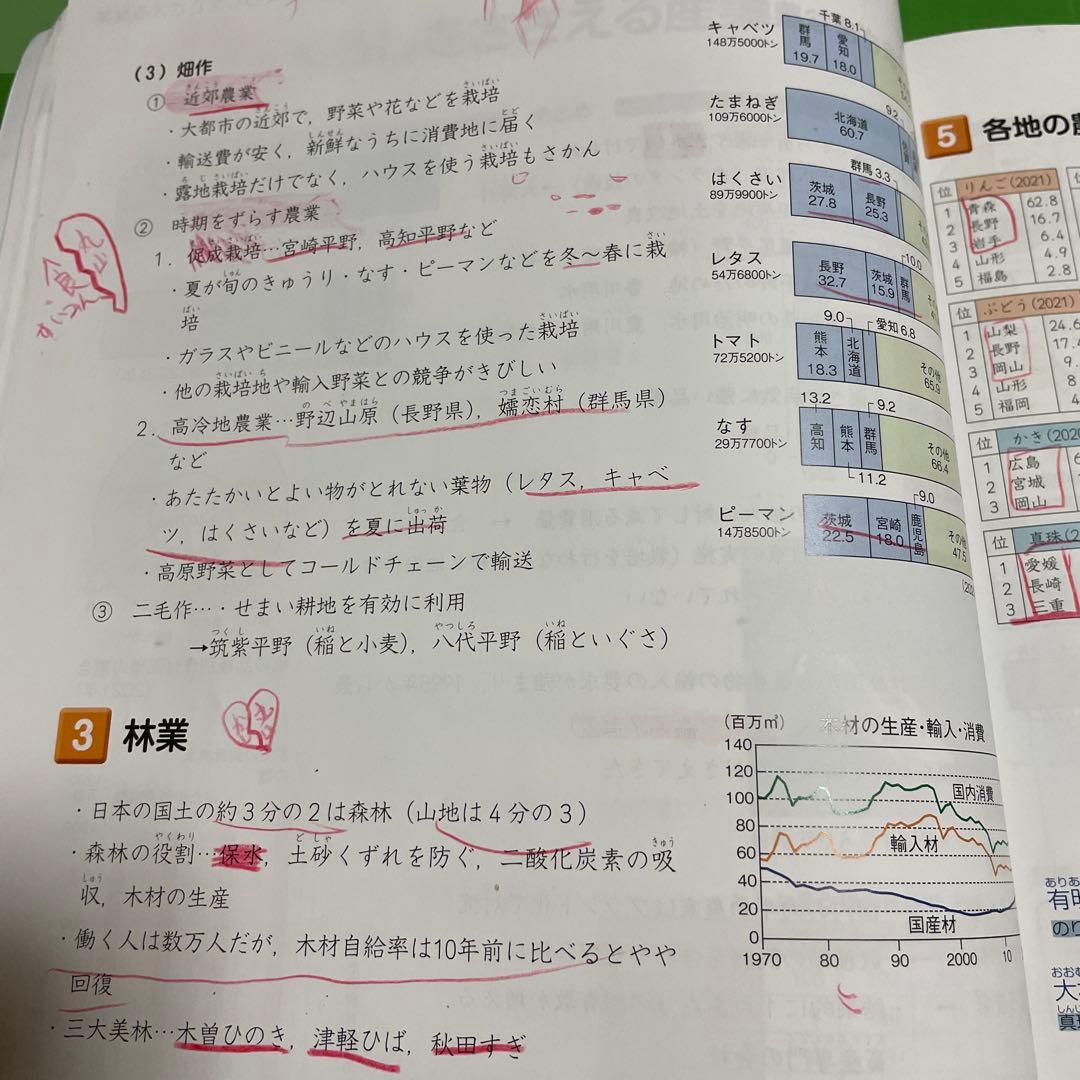 (3) 畑作
① 近郊農業
・大都市の近郊で，野菜や花などを栽培
・輸送費が安く，新鮮なうちに消費地に届く
・露地栽培だけでなく，ハウスを使う栽培もさかん
② 時期をずらす農業
1．促成栽培…宮崎平野，高知平野など
・夏が旬のきゅうり・なす・ピーマンなどを冬〜春に栽
培
・ガラスやビニールなどのハウスを使った栽培
・他の栽培地や輸入野菜との競争がきびしい
2．高冷地農業…野辺山原（長野県），嬬恋村（群馬県）
など
・あたたかいとよい物がとれない葉物（レタス，キャベ
ツ，はくさいなど）を夏に出荷
・高原野菜としてコールドチェーンで輸送
③ 二毛作…・せまい耕地を有効に利用
→筑紫平野（稲と小麦），八代平野（稲といぐさ）
3 林業
・日本の国土の約3分の2は森林（山地は4分の3）
・森林の役割…保水，土砂くずれを防ぐ，二酸化炭素の吸
収，木材の生産
・働く人は数万人だが，木材自給率は10年前に比べるとやや
回復
・三大美林…木曽ひのき，津軽ひば，秋田すぎ
キャベツ
148万5000トン
群馬 19.7 愛知 18.0 千葉 8.1
たまねぎ
109万6000トン
北海道 60.7
はくさい
89万9900トン
茨城 27.8 長野 25.3 群馬 3.3
レタス
54万6800トン
長野 32.7 茨城 15.9 群馬 10.0
トマト
72万5200トン
熊本 18.3 北海道 9.0 愛知 6.8 その他 65.9
なす
29万7700トン
高知 13.2 熊本 11.2 群馬 9.2 その他 66.4
ピーマン
14万8500トン
茨城 22.5 宮崎 18.0 鹿児島 9.0 その他 47.5
(百万㎥) 木材の生産・輸入・消費
140
120
100
80
60
40
20
0
国内消費
輸入材
国産材
1970 80 90 2000 10
5 各地の農
位 りんご(2021)
1 青森 62.8
2 長野 16.7
3 岩手 6.4
4 山形 4.9
5 福島 2.8
位 ぶどう(2021)
1 山梨 24.6
2 長野 17.4
3 岡山 9.
4 山形 8
5 福岡 4
位 かき(2020
1 広島
2 宮城
3 岡山
位 真珠(2
1 愛媛
2 長崎
3 三重
有明
のり